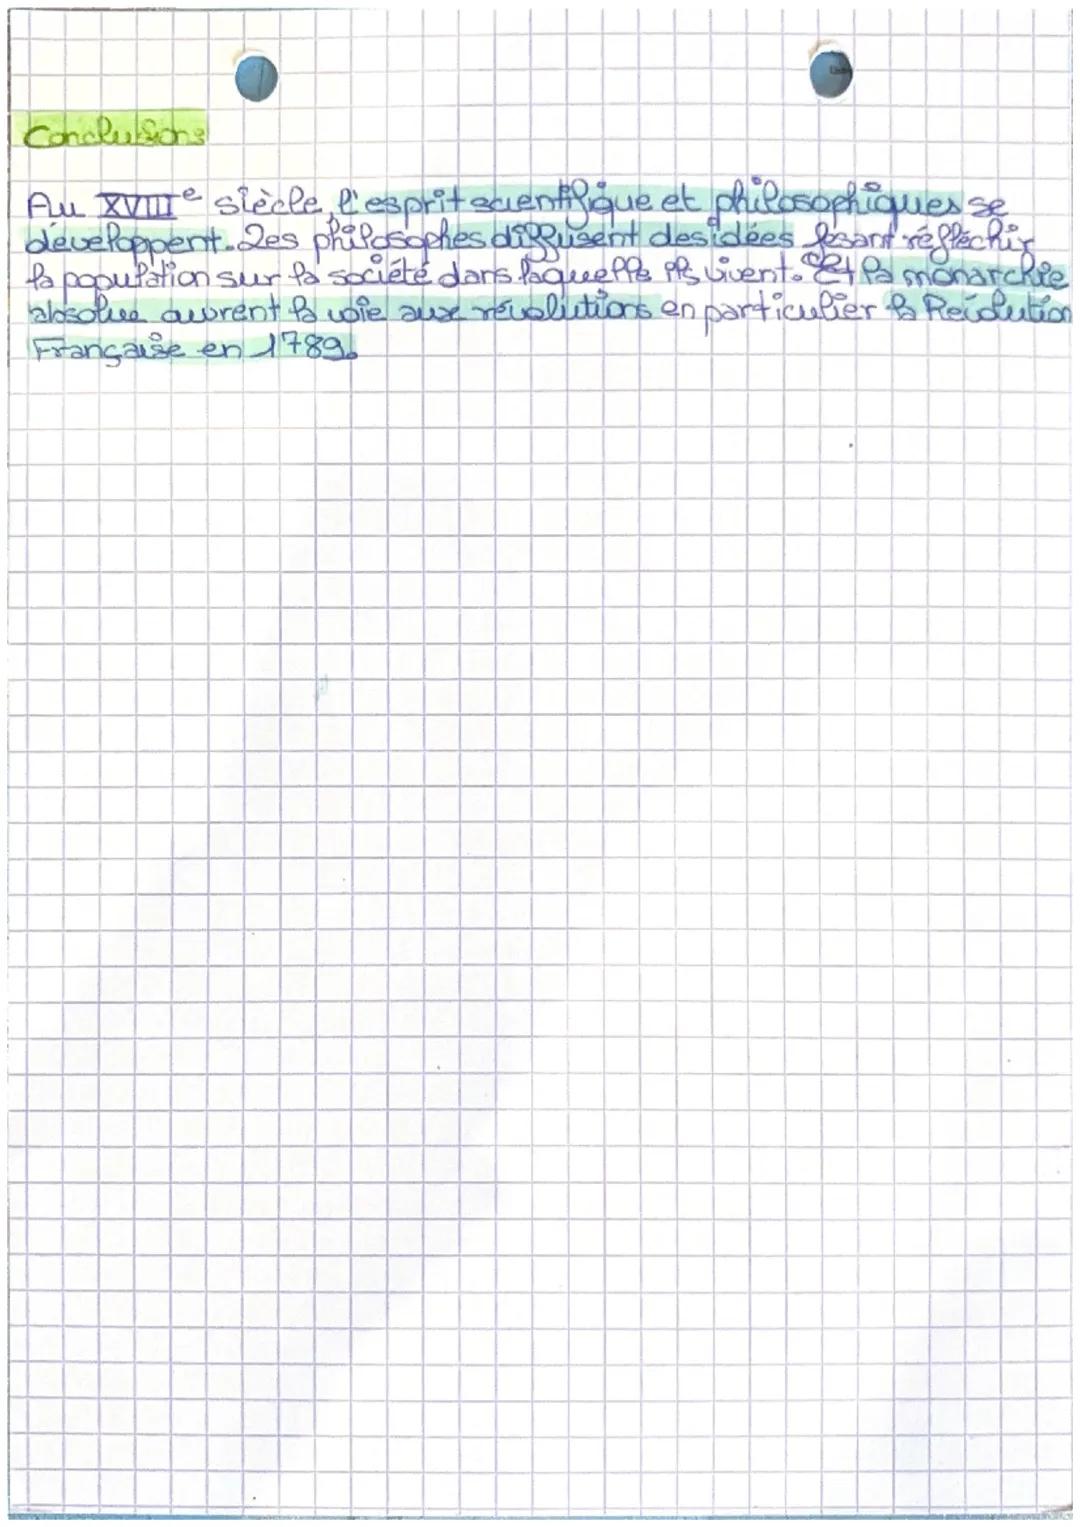 Conclusions
Au XVIIIe siècle, l'esprit scientifique et philosophiques se
développent. Les philosophes diffusent des idées fesant réfléchir
la population sur la société dans laquelle ils vivent. Et la monarchie
absolue ouvrent la voie aux révolutions en particulier la Révolution
Française en 1789.